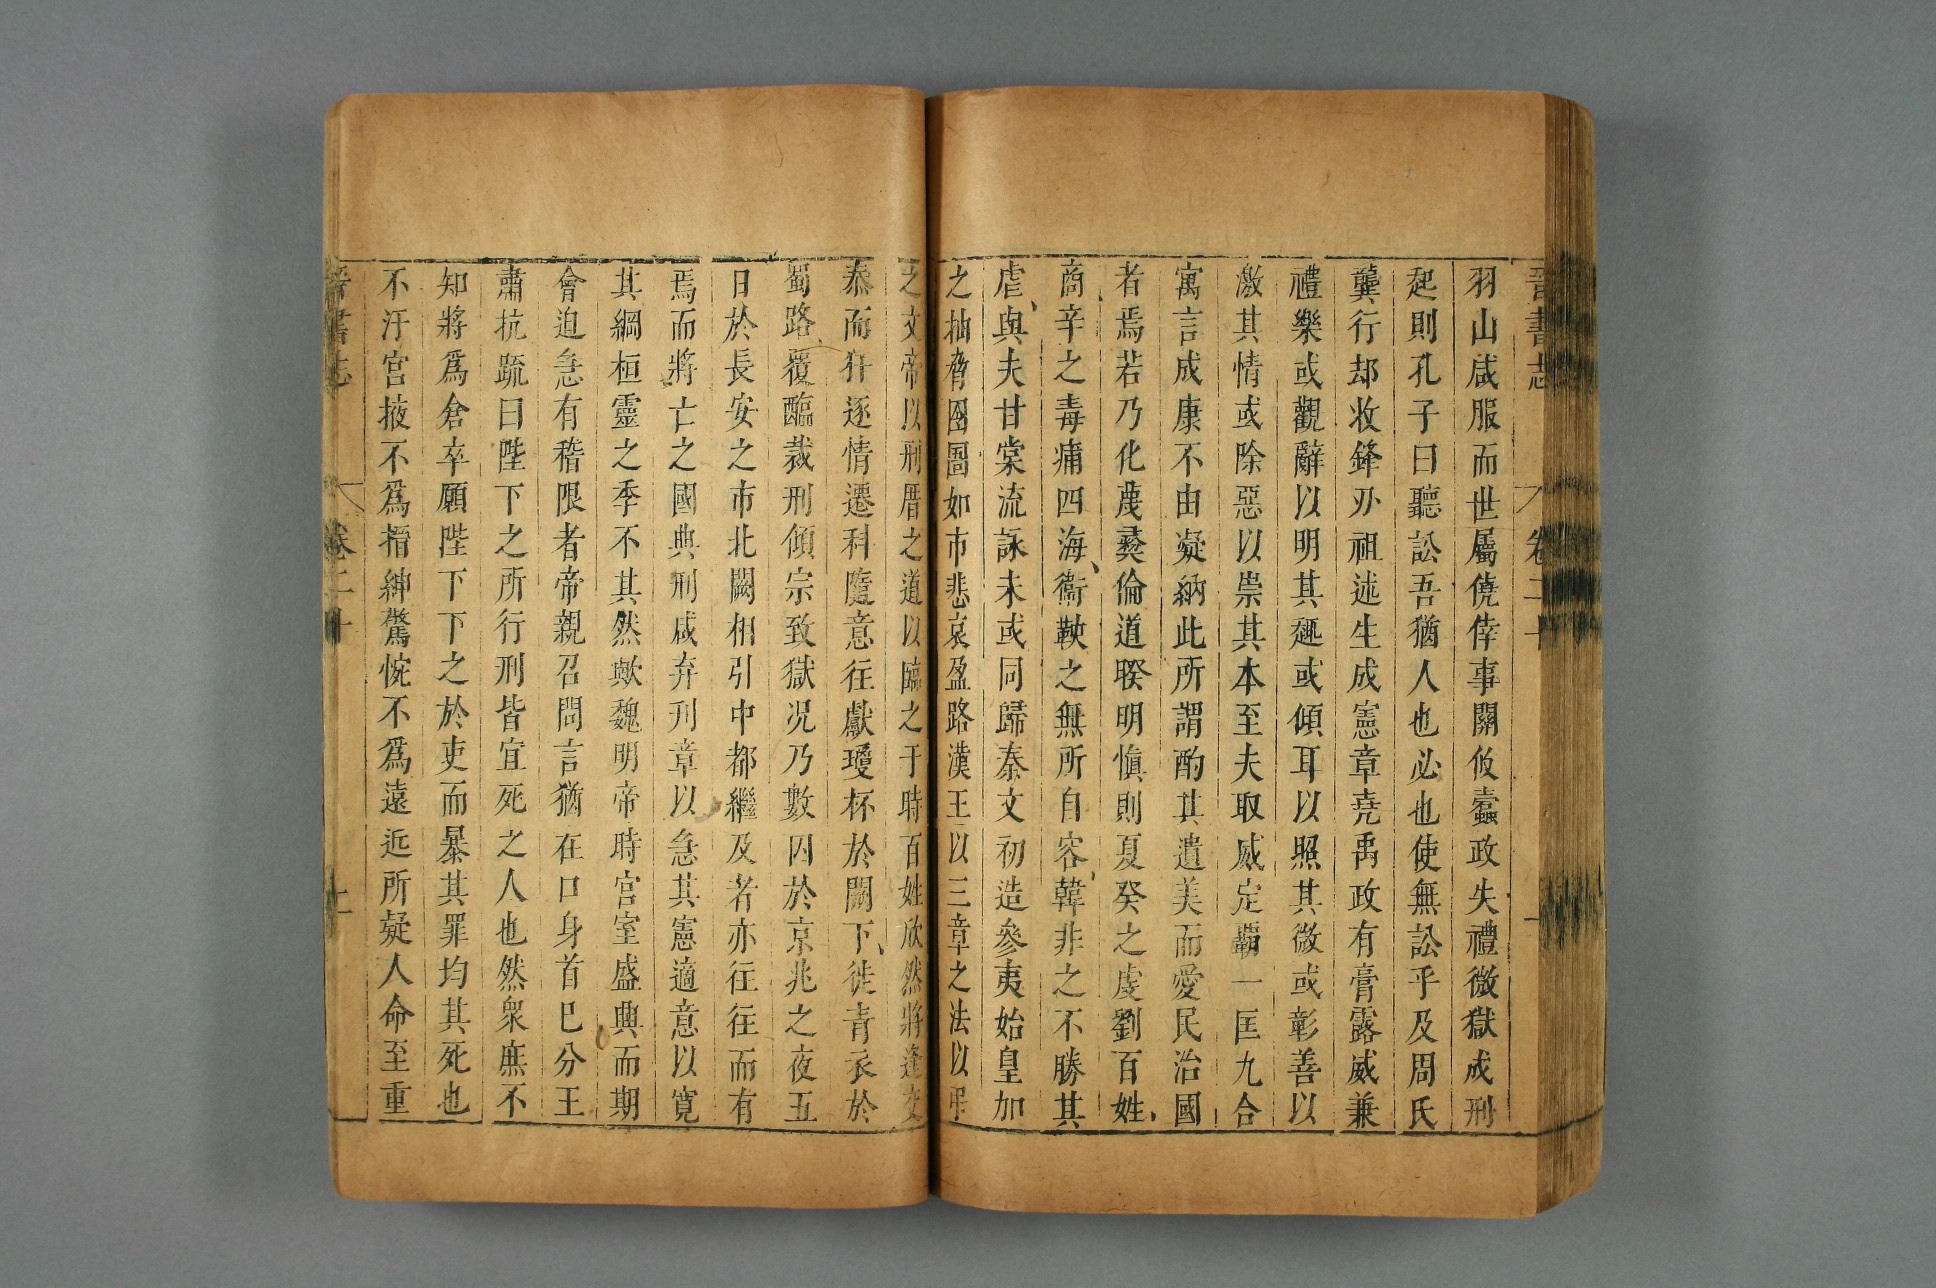 晉書志 卷二十 一
羽山咸服而世屬僥倖事關攸蠹政失禮微獄成刑
起則孔子曰聽訟吾猶人也必也使無訟乎及周氏
龔行却收鋒刃祖述生成憲章堯禹政有膏露威兼
禮樂或觀辭以明其趣或傾耳以照其微或彰善以
激其情或除惡以崇其本至夫取威定霸一匡九合
寓言成康不由凝網此所謂酌其遺美而愛民治國
者焉若乃化蔑彝倫道睽明慎則夏癸之虔劉百姓
商辛之毒痡四海衞鞅之無所自容韓非之不勝其
虐與夫甘棠流詠未或同歸秦文初造參夷始皇加
之抽脅囹圄如市悲哀盈路漢王以三章之法以弔
之文帝以刑厝之道以臨之于時百姓欣然將逢交
泰而犴逐情遷科隨意往獻瓊杯於闕下徙青衣於
蜀路覆醢裁刑傾宗致獄况乃數囚於京兆之夜五
日於長安之市北闕相引中都繼及者亦往往而有
焉而將亡之國典刑咸弃刋章以急其憲適意以寛
其綱桓靈之季不其然歟魏明帝時宮室盛興而期
會迫急有稽限者帝親召問言猶在口身首已分王
肅抗疏曰陛下之所行刑皆宜死之人也然衆庶不
知將爲倉卒願陛下下之於吏而暴其罪均其死也
不汙宮掖不爲搢紳驚惋不爲遠近所疑人命至重
晉書志 卷二十 二